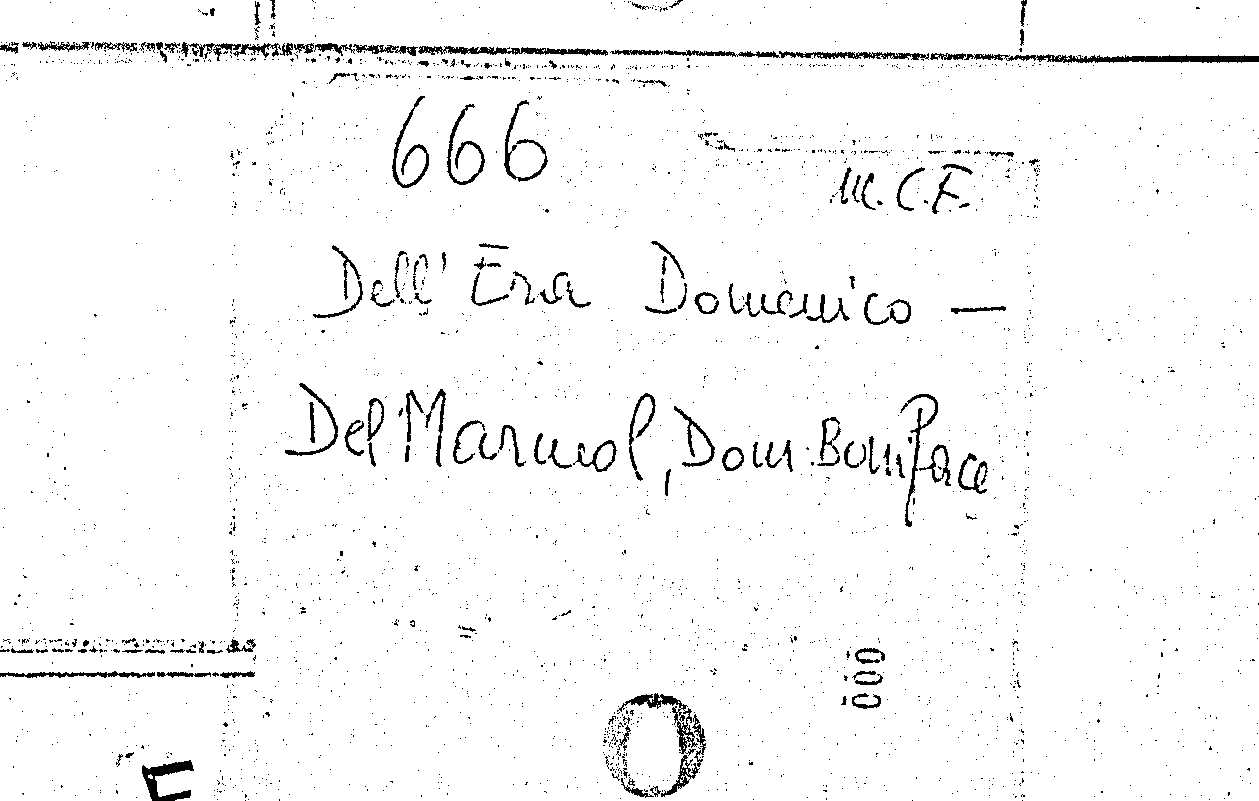 666
M.C.F.
Dell'Era Domenico —
Del Marmol, Dom Boniface
000